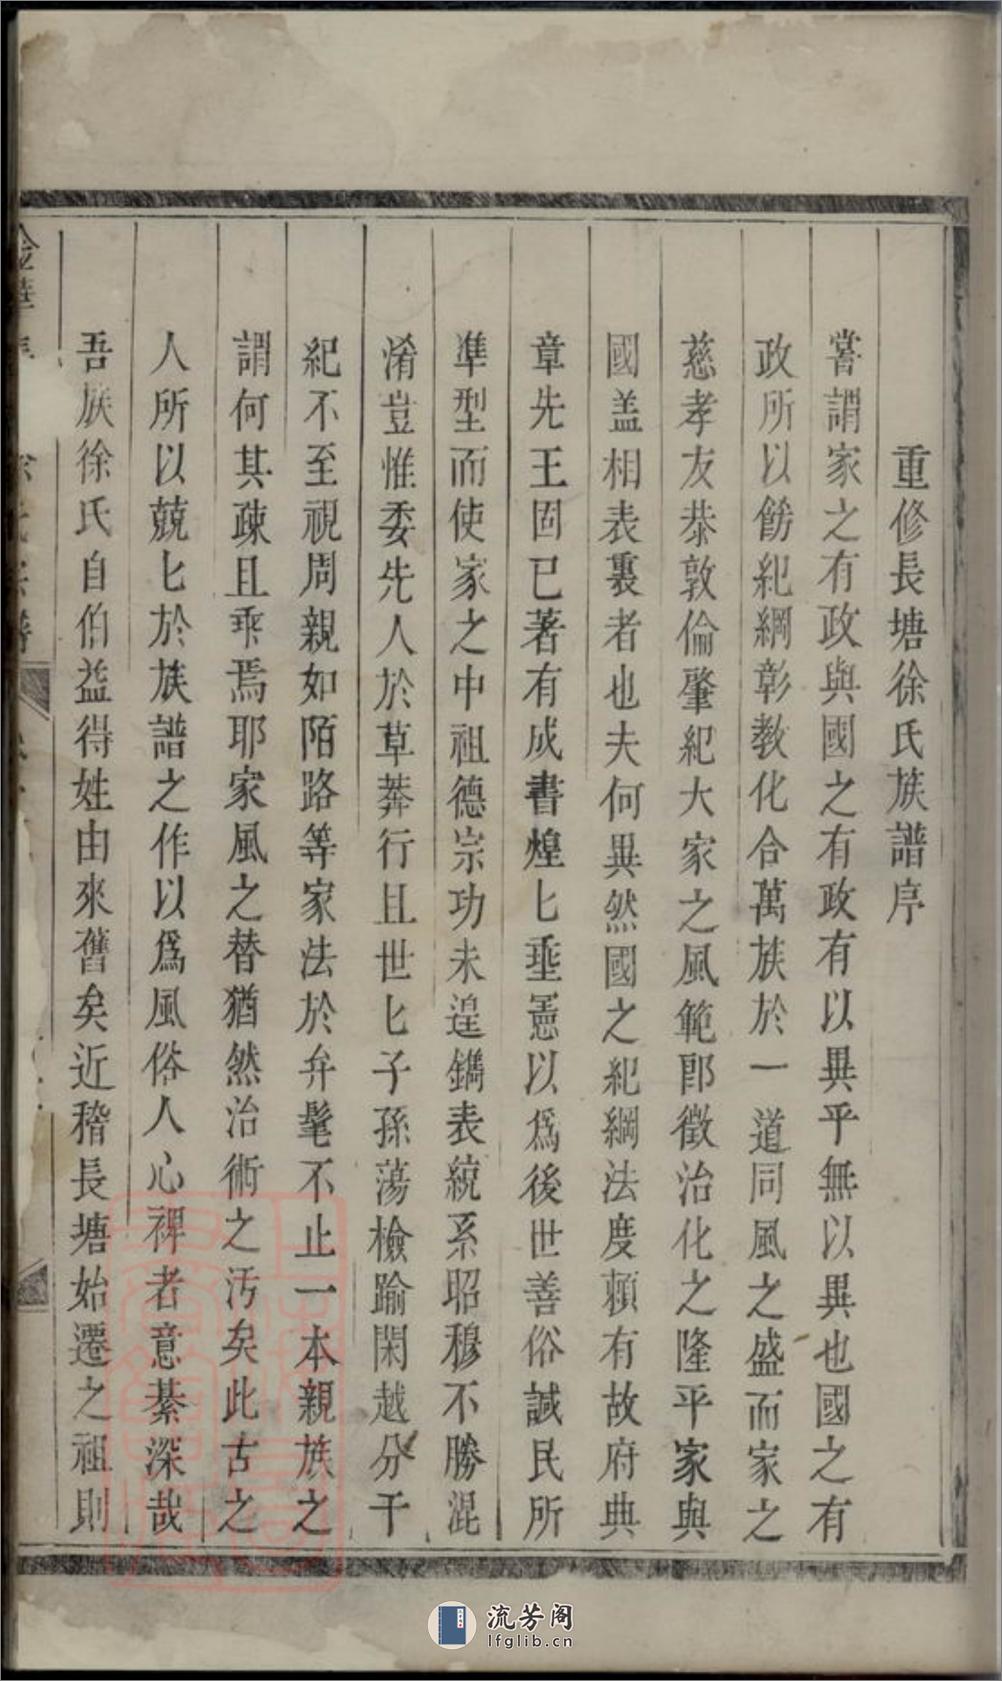 重修長塘徐氏族譜序
嘗謂家之有政與國之有政有以異乎無以異也國之有
政所以飭紀綱彰教化合萬族於一道同風之盛而家之
慈孝友恭敦倫肇紀大家之風範卽徵治化之隆平家與
國盖相表裏者也夫何異然國之紀綱法度賴有故府典
章先王固已著有成書煌匕垂憲以爲後世善俗諴民所
準型而使家之中祖德宗功未遑鐫表統系昭穆不勝混
淆豈惟委先人於草莽行且世匕子孫蕩檢踰閑越分干
紀不至視周親如陌路等家法於弁髦不止一本親族之
謂何其疎且乖焉耶家風之替猶然治術之汚矣此古之
人所以兢匕於族譜之作以爲風俗人心裨者意綦深哉
吾族徐氏自伯益得姓由來舊矣近稽長塘始遷之祖則
金華
流芳阁
lfglib.cn